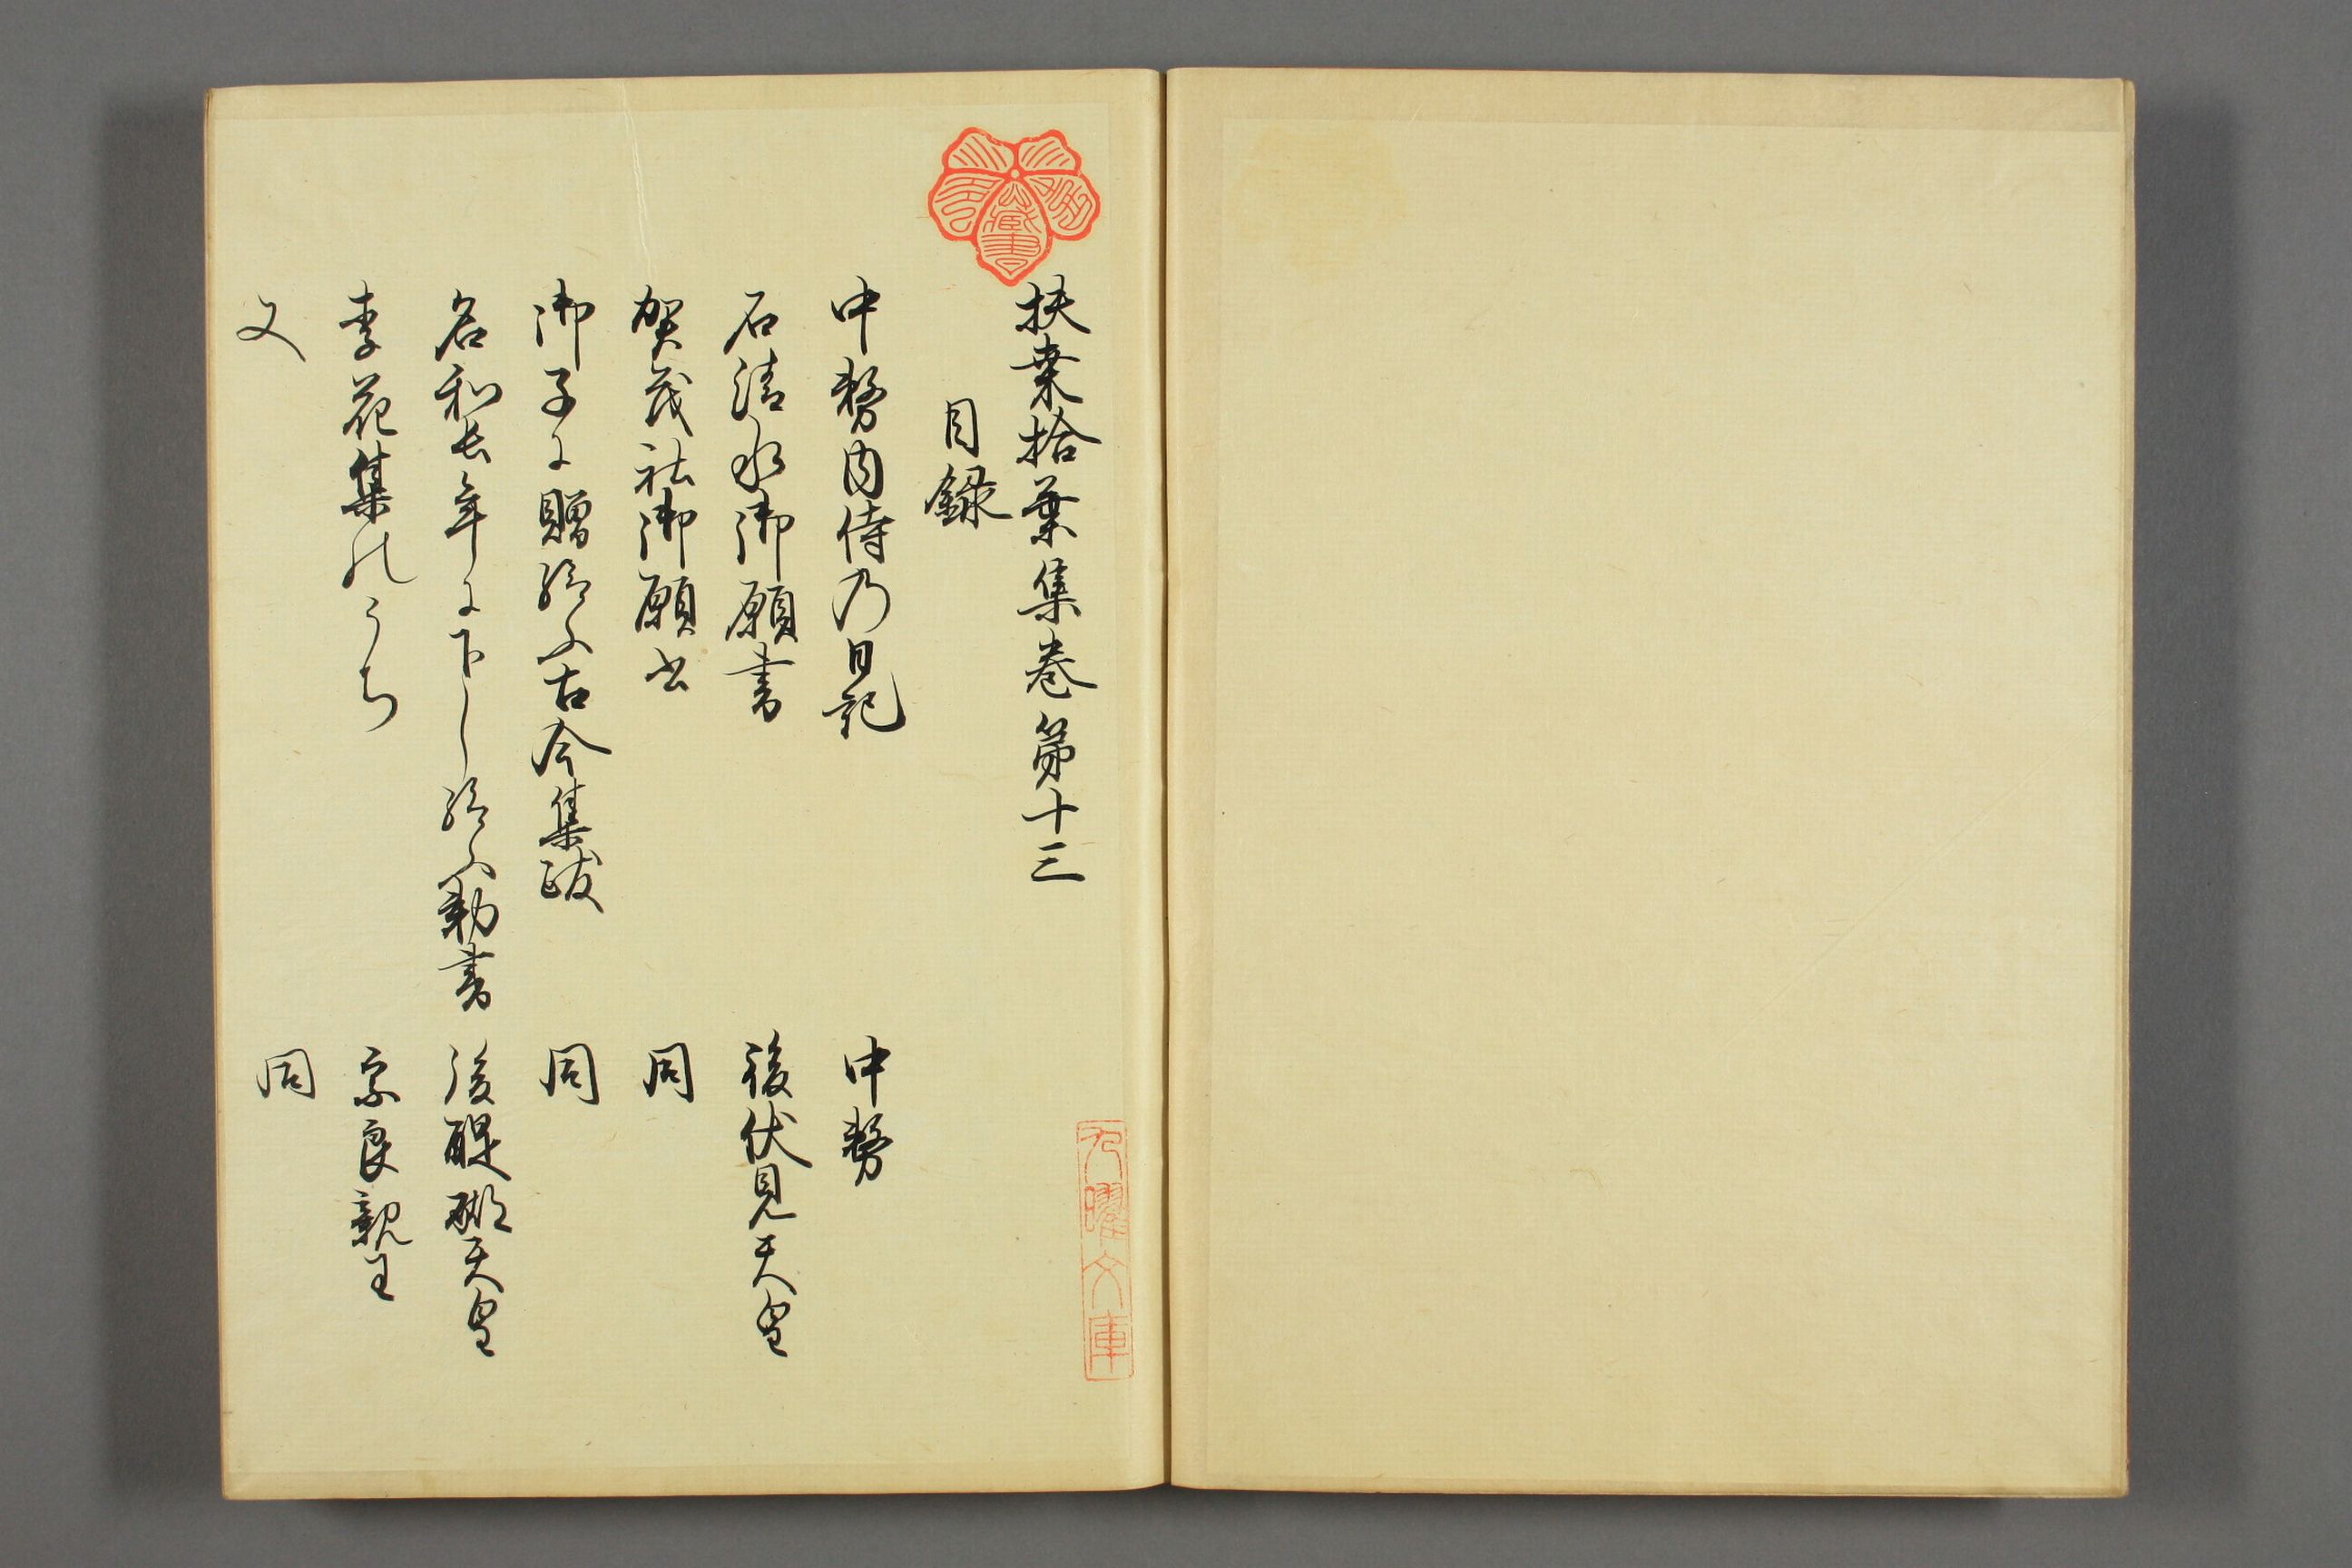 扶桒拾葉集巻第十三
目録
中務内侍乃日記 中務
石清水御願書 後伏見天皇
賀茂社御願书 同
御子に贈給ふ古今集跋 同
名和長年に下し給ふ勅書 後醍醐天皇
李花集のうち 宗良親王
又 同
藏書
九曜文庫